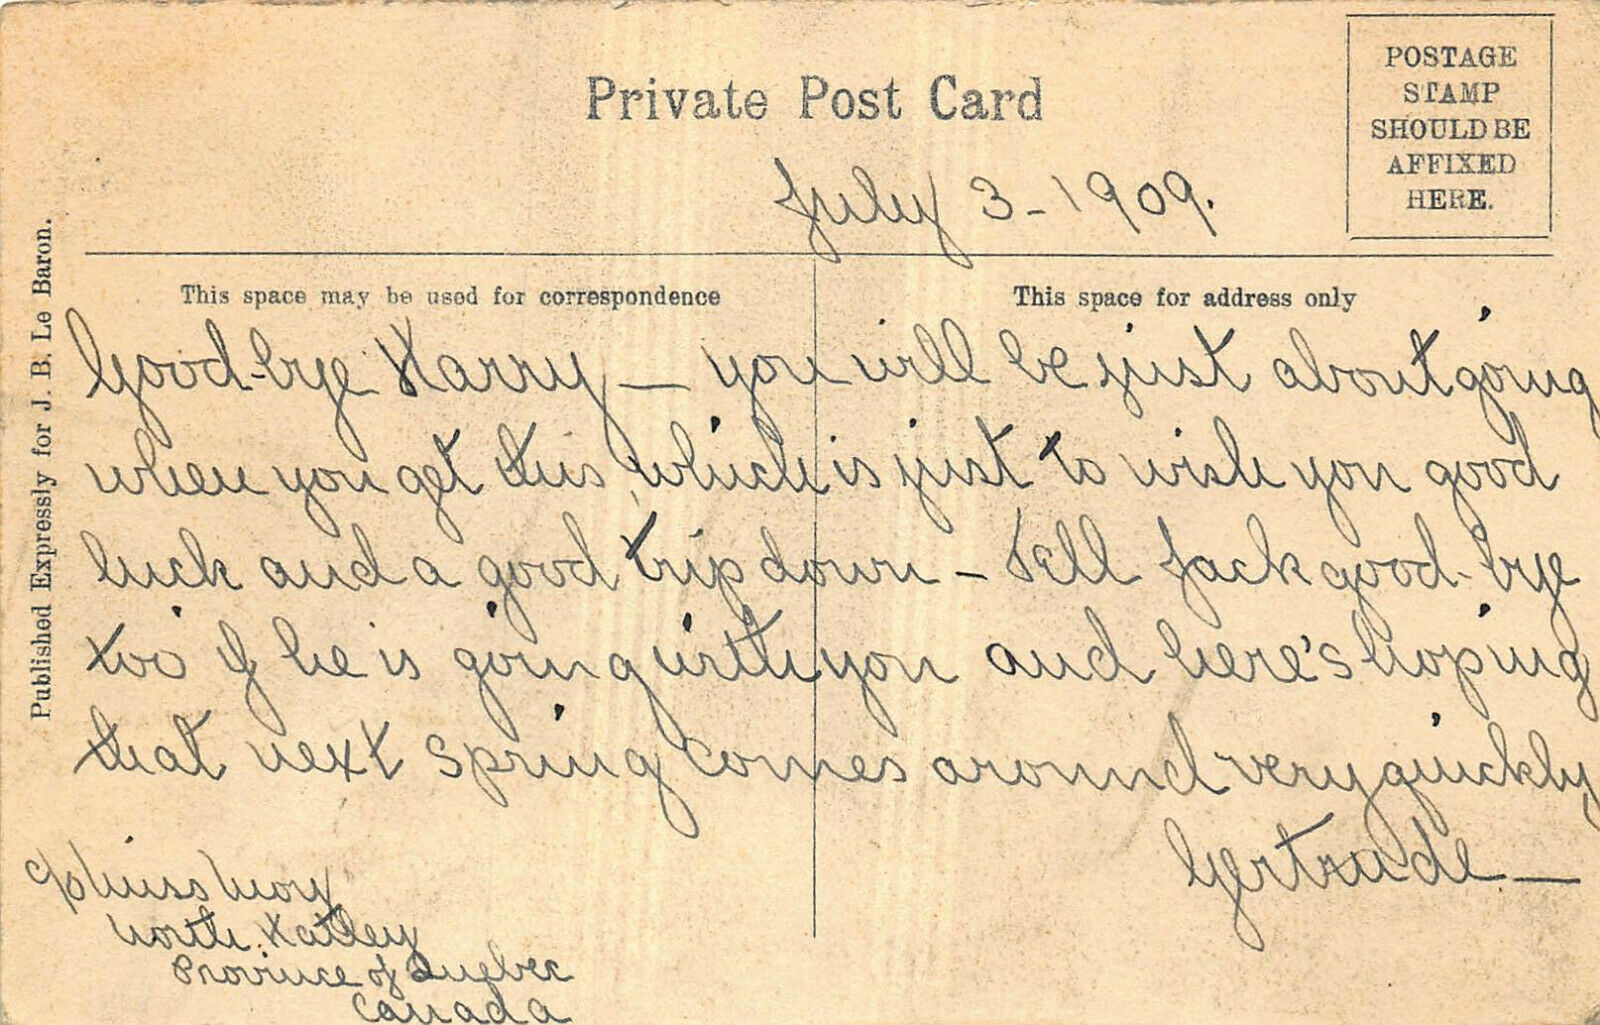 Private Post Card
POSTAGE
STAMP
SHOULD BE
AFFIXED
HERE.
July 3-1909.
This space may be used for correspondence
This space for address only
Published Expressly for J. B. Le Baron.
Good-bye Harry — you will be just about going
when you get this, which is just to wish you good
luck and a good trip down - Tell Jack good-bye
too if he is going with you and here's hoping
that next spring comes around very quickly
Gertrude —
c/o Miss
North Hatley
Province of Quebec
Canada